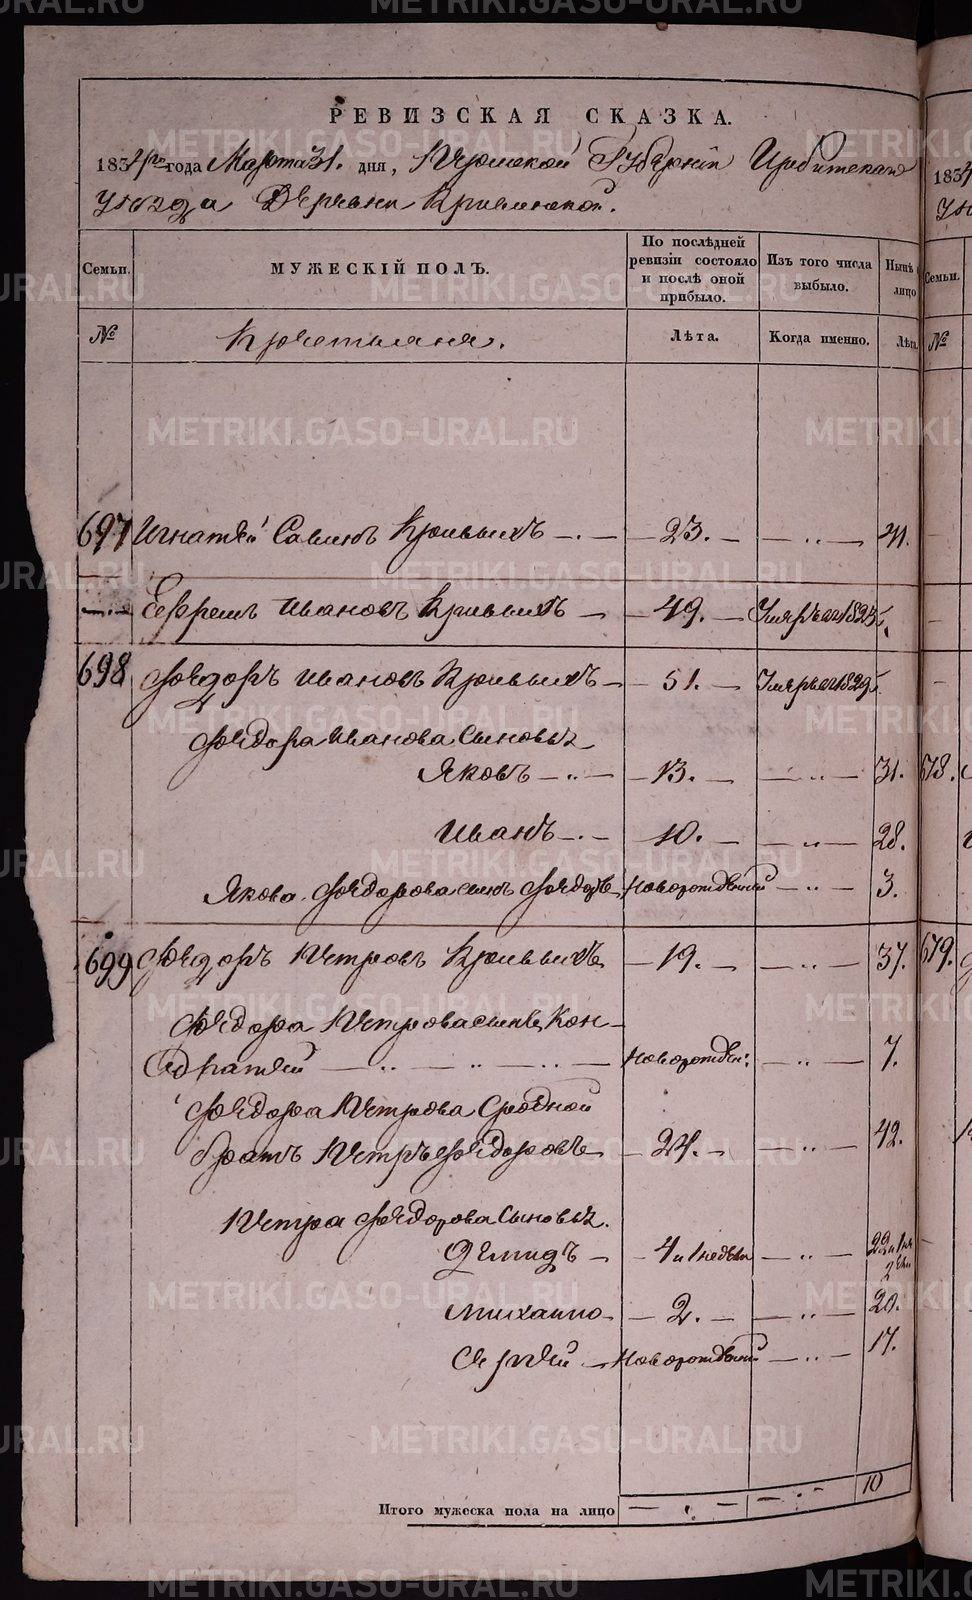 РЕВИЗСКАЯ СКАЗКА.
1834 го года Марта 31. дня, Пермской Губернiи Ирбитскаго
уѣзда Деревни Кривинской.
Семьи. МУЖЕСКІЙ ПОЛЪ. По послѣдней ревизіи состояло и послѣ оной прибыло. Изъ того числа выбыло. Нынѣ лицо
№ Крестьяня. Лѣта. Когда именно. Лѣта.
697 Игнатей Савинъ Кривыхъ 23. 41.
Ефремъ Ивановъ Кривыхъ 49. Умре въ 1825.
698 Федоръ Ивановъ Кривыхъ 51. Умре въ 1829.
Федора Иванова Сыновья
Яковъ 13. 31.
Иванъ 10. 28.
Якова Федорова сынъ Федоръ Новорожденный 3.
699 Федоръ Петровъ Кривыхъ 19. 37.
Федора Петрова сынъ Кон-
дратей Новорожден: 7.
Федора Петрова Сродной
братъ Петръ Федоровъ 24. 42.
Петра Федорова Сыновья.
Демидъ 4 и 1 недели
Михайло 2. 20.
Сергей Новорожденный 17.
Итого мужеска пола на лицо 10
1834
Семьи.
№
678.
679.
METRIKI.GASO-URAL.RU